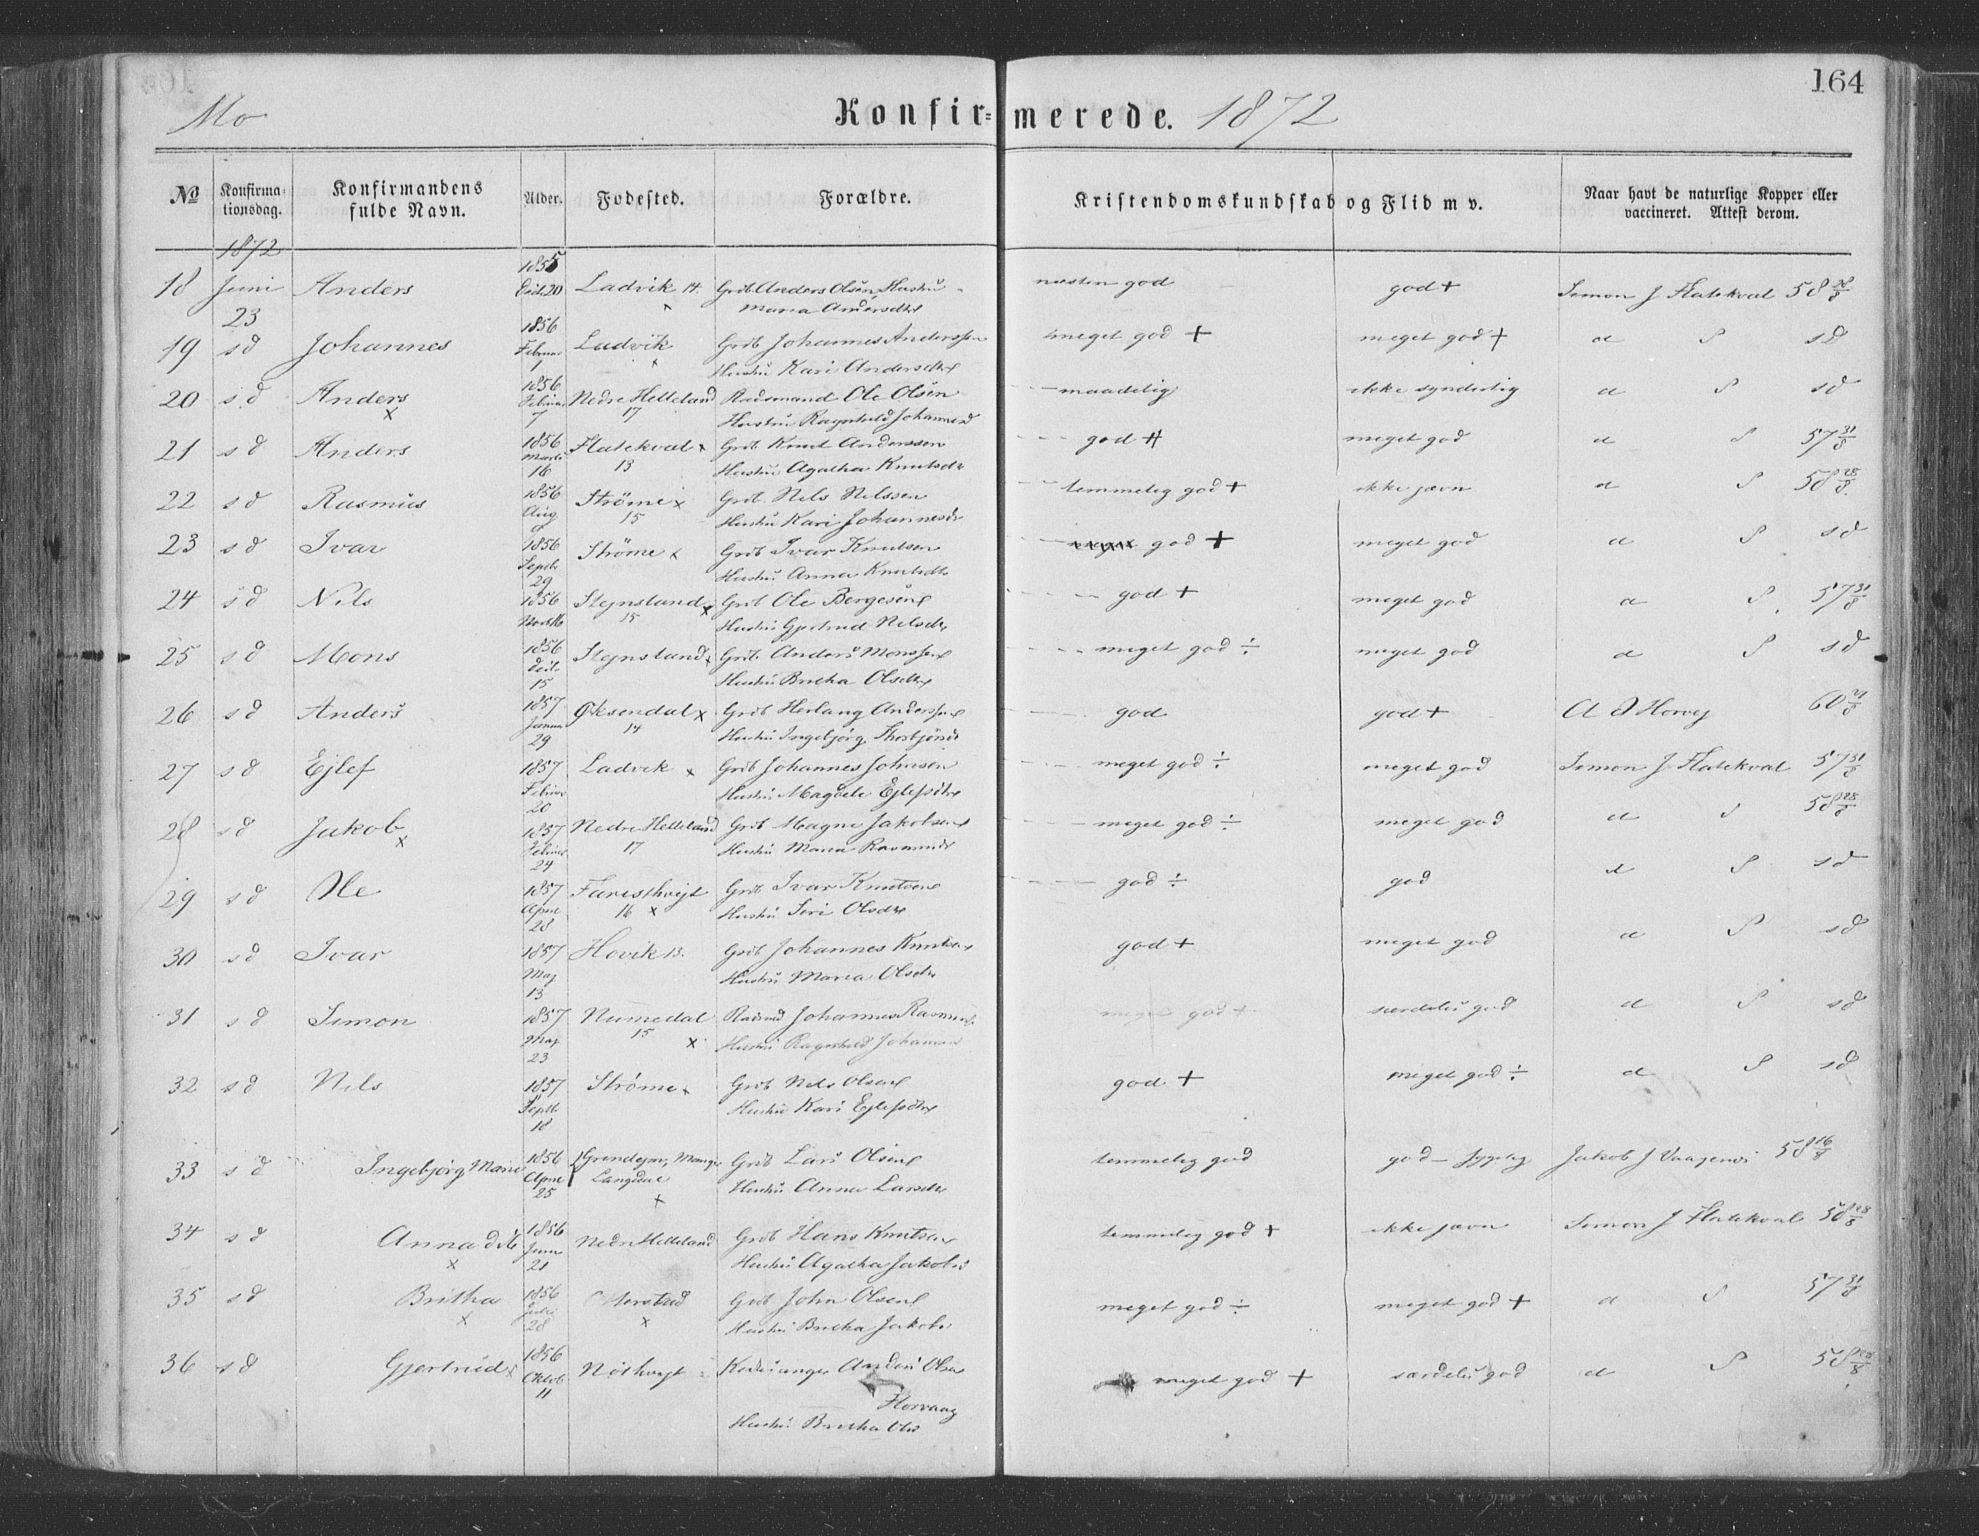 164
Mo
Konfirmerede. 1872
No
Konfirma-
tionsdag.
Konfirmandens
fulde Navn.
Alder.
Fødested.
Forældre.
Kristendomskundskab og Flid m v.
Naar havt de naturlige Kopper eller
vaccineret. Attest derom.
1872
18 Juni 23 Anders 1855 20 Ladvik 14 Grdb Anders Olsen Hustru
Maria Andersdtr
næsten god god + Simon J Flatekval 58 28/8
19 sd Johannes 1856 Februar 7 Ladvik Grdb Johannes Anderssen
Hustru Kari Andersdtr
meget god + meget god + d S sd
20 sd Anders 1856 Februar 7 Nedre Helleland 17 Ole Olsen
Hustru Ragnhild Johannesd
maadelig ikke synderlig d S sd
21 sd Anders 1856 Marts 16 Flatekval 13 Grdb Knut Anderssen
Hustru Agatha Knutsdtr
god + meget god d S 57 31/8
22 sd Rasmus 1856 Aug Strøme 15 Grdb Nels Nelssen
Hustru Kari Johannesdr
temmelig god + ikke jævn d S 58 28/8
23 sd Ivar 1856 Septb 29 Strøme Grdb Ivar Knutsen
Hustru Anna Knutsdtr
god + meget god d S sd
24 sd Nils 1856 Stejnsland 15 Grdb Ole Bergesen
Hustru Gjertrud Nelsdtr
god + meget god d S 57 31/8
25 sd Mons 1856 15 Stejnsland Grdb Anders Monssen
Hustru Britha Olsdtr
meget god ÷ meget god d S sd
26 sd Anders 1857 Januar 29 Øksendal 14 Grdb Herlaug Anderssen
Hustru Ingebjørg
god god + 60
27 sd Ejlef 1857 Februar 20 Ladvik Grdb Johannes Johnsen
Hustru Ejlefsdtr
meget god ÷ meget god Simon J Flatekval 57 31/8
28 sd Jakob 1857 Februar 24 Nedre Helleland 17 Grdb Magne Jakobsen
Hustru Maria
meget god ÷ meget god d S 58 28/8
29 sd Ole 1857 April 28 16 Grdb Ivar Knutsen
Hustru Siri Olsdtr
god ÷ god d S sd
30 sd Ivar 1857 Maj 13 Hovik 13. Grdb Johannes Knutsen
Hustru Maria Olsdtr
god + meget god d S sd
31 sd Simon 1857 Maj 23 Numedal 15 Johannes
Hustru Ragnhild
meget god + særdeles god d S sd
32 sd Nils 1857 Septb 18 Strøme Grdb Nels Olsen
Hustru Kari Ejlefsdtr
god + meget god ÷ d S sd
33 sd Ingebjørg Marie 1856 April 25 Langedal Grdb Lars Olsen
Hustru Anna Larsdtr
temmelig god god Jakob J 58 16/8
34 sd Anna 1856 21 Nedre Helleland Grdb Hans Knutsen
Hustru Agatha Jakobs
temmelig god + ikke jævn Simon J Flatekval 58 28/8
35 sd Britha 1856 Juli 28 Grdb John Olsen
Hustru Britha Jakobs
meget god ÷ meget god + d S 57 31/8
36 sd Gjertrud 1856 Oktob 11 Kirkesanger Anders Olsen
Horvaag
Hustru Britha Ols
meget god + særdeles god d S 58 28/8